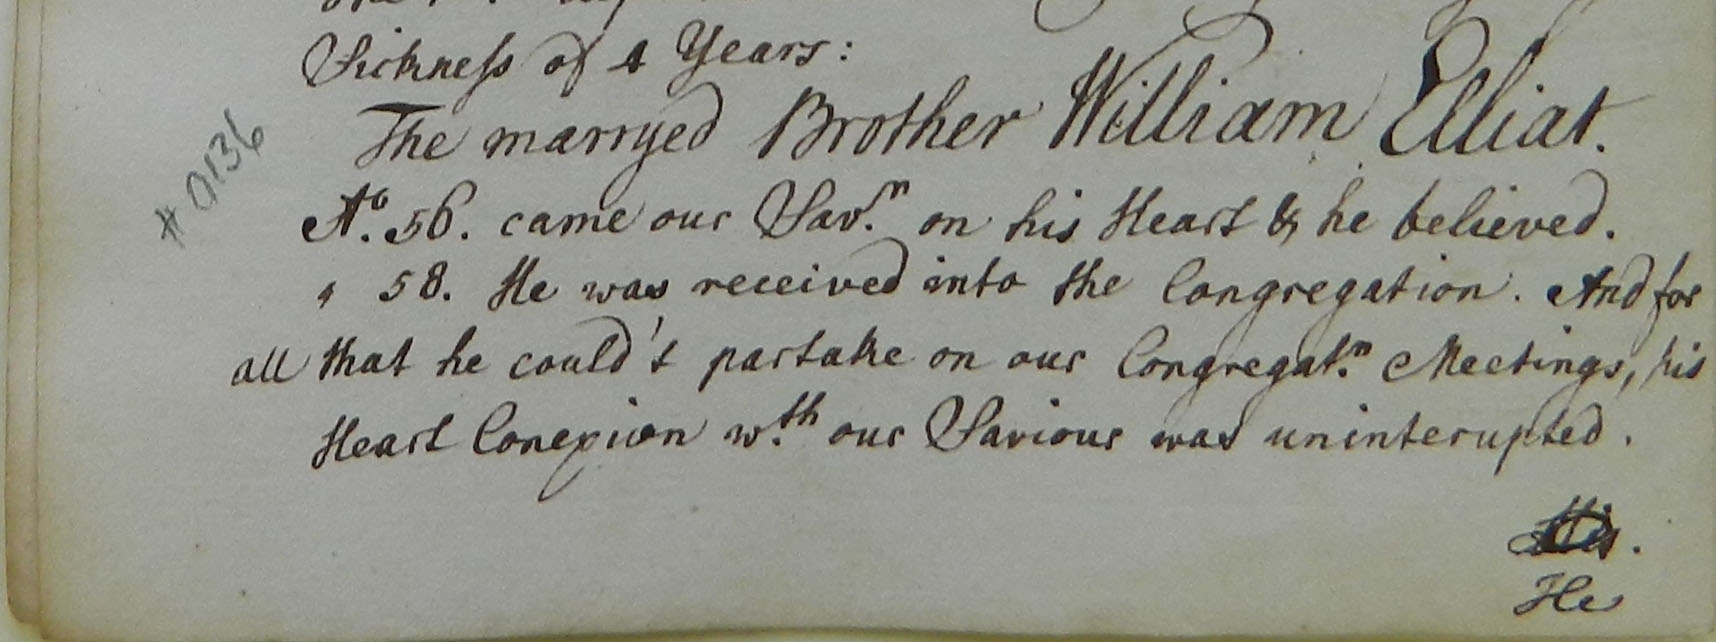 Sickness of 4 Years:
The marryed Brother William Elliat.
#0136
Ao. 56. came our Savr. on his Heart & he believed.
" 58. He was received into the Congregation. And for
all that he could't partake on our Congregatn. Meetings, his
Heart Conexion wth. our Saviour was uninterupted.
He